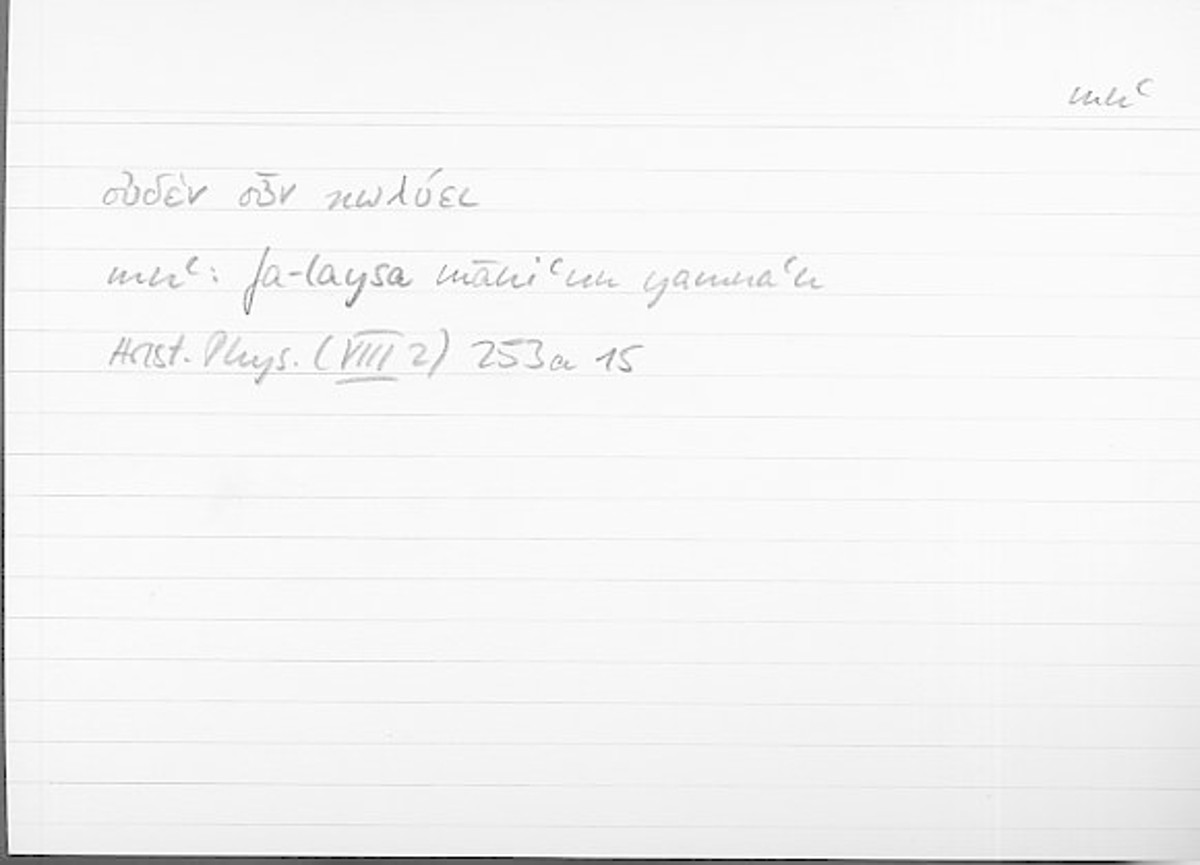 mnʿ
οὐδὲν οὖν κωλύει
mnʿ: fa-laysa māniʿun yamnaʿu
Arist. Phys. (VIII 2) 253a 15